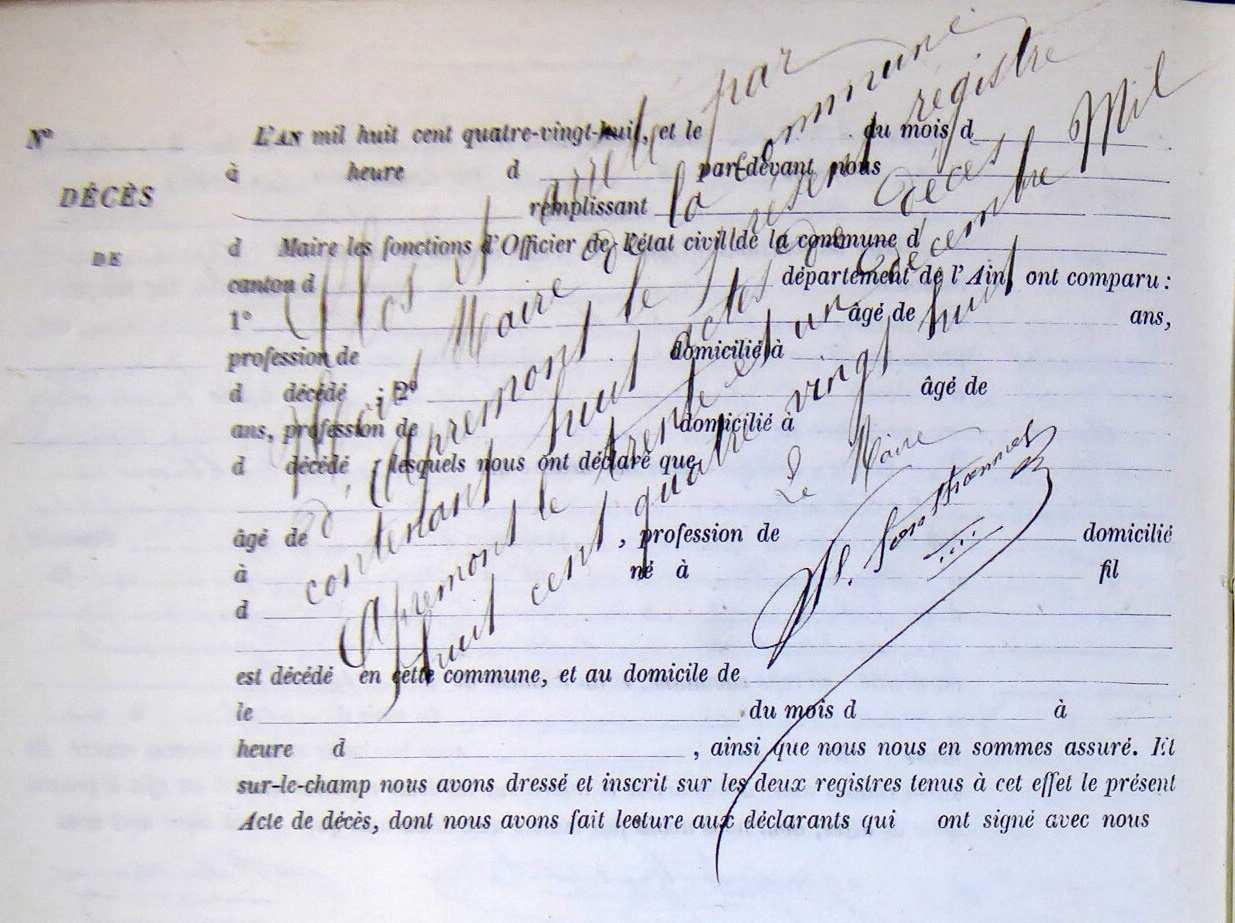 N° L'AN mil huit cent quatre-vingt-huit, et le du mois d
à heure d par-devant nous
DÉCÈS
remplissant
DE
d Maire les fonctions d'Officier de l'état civil de la commune d
canton d département de l'Ain, ont comparu :
1° âgé de ans,
profession de domicilié à
d décédé ; 2° âgé de
ans, profession de domicilié à
d décédé ; lesquels nous ont déclaré que
âgé de , profession de domicilié
à né à fil
d
est décédé en cette commune, et au domicile de
le du mois d à
heure d , ainsi que nous nous en sommes assuré. Et
sur-le-champ nous avons dressé et inscrit sur les deux registres tenus à cet effet le présent
Acte de décès, dont nous avons fait lecture aux déclarants qui ont signé avec nous
Clos et arrêté par
Nous Maire de la commune
d'Apremont le présent registre
contenant huit actes de Décès
Apremont le trente et un Décembre Mil
huit cent quatre vingt huit
Le Maire